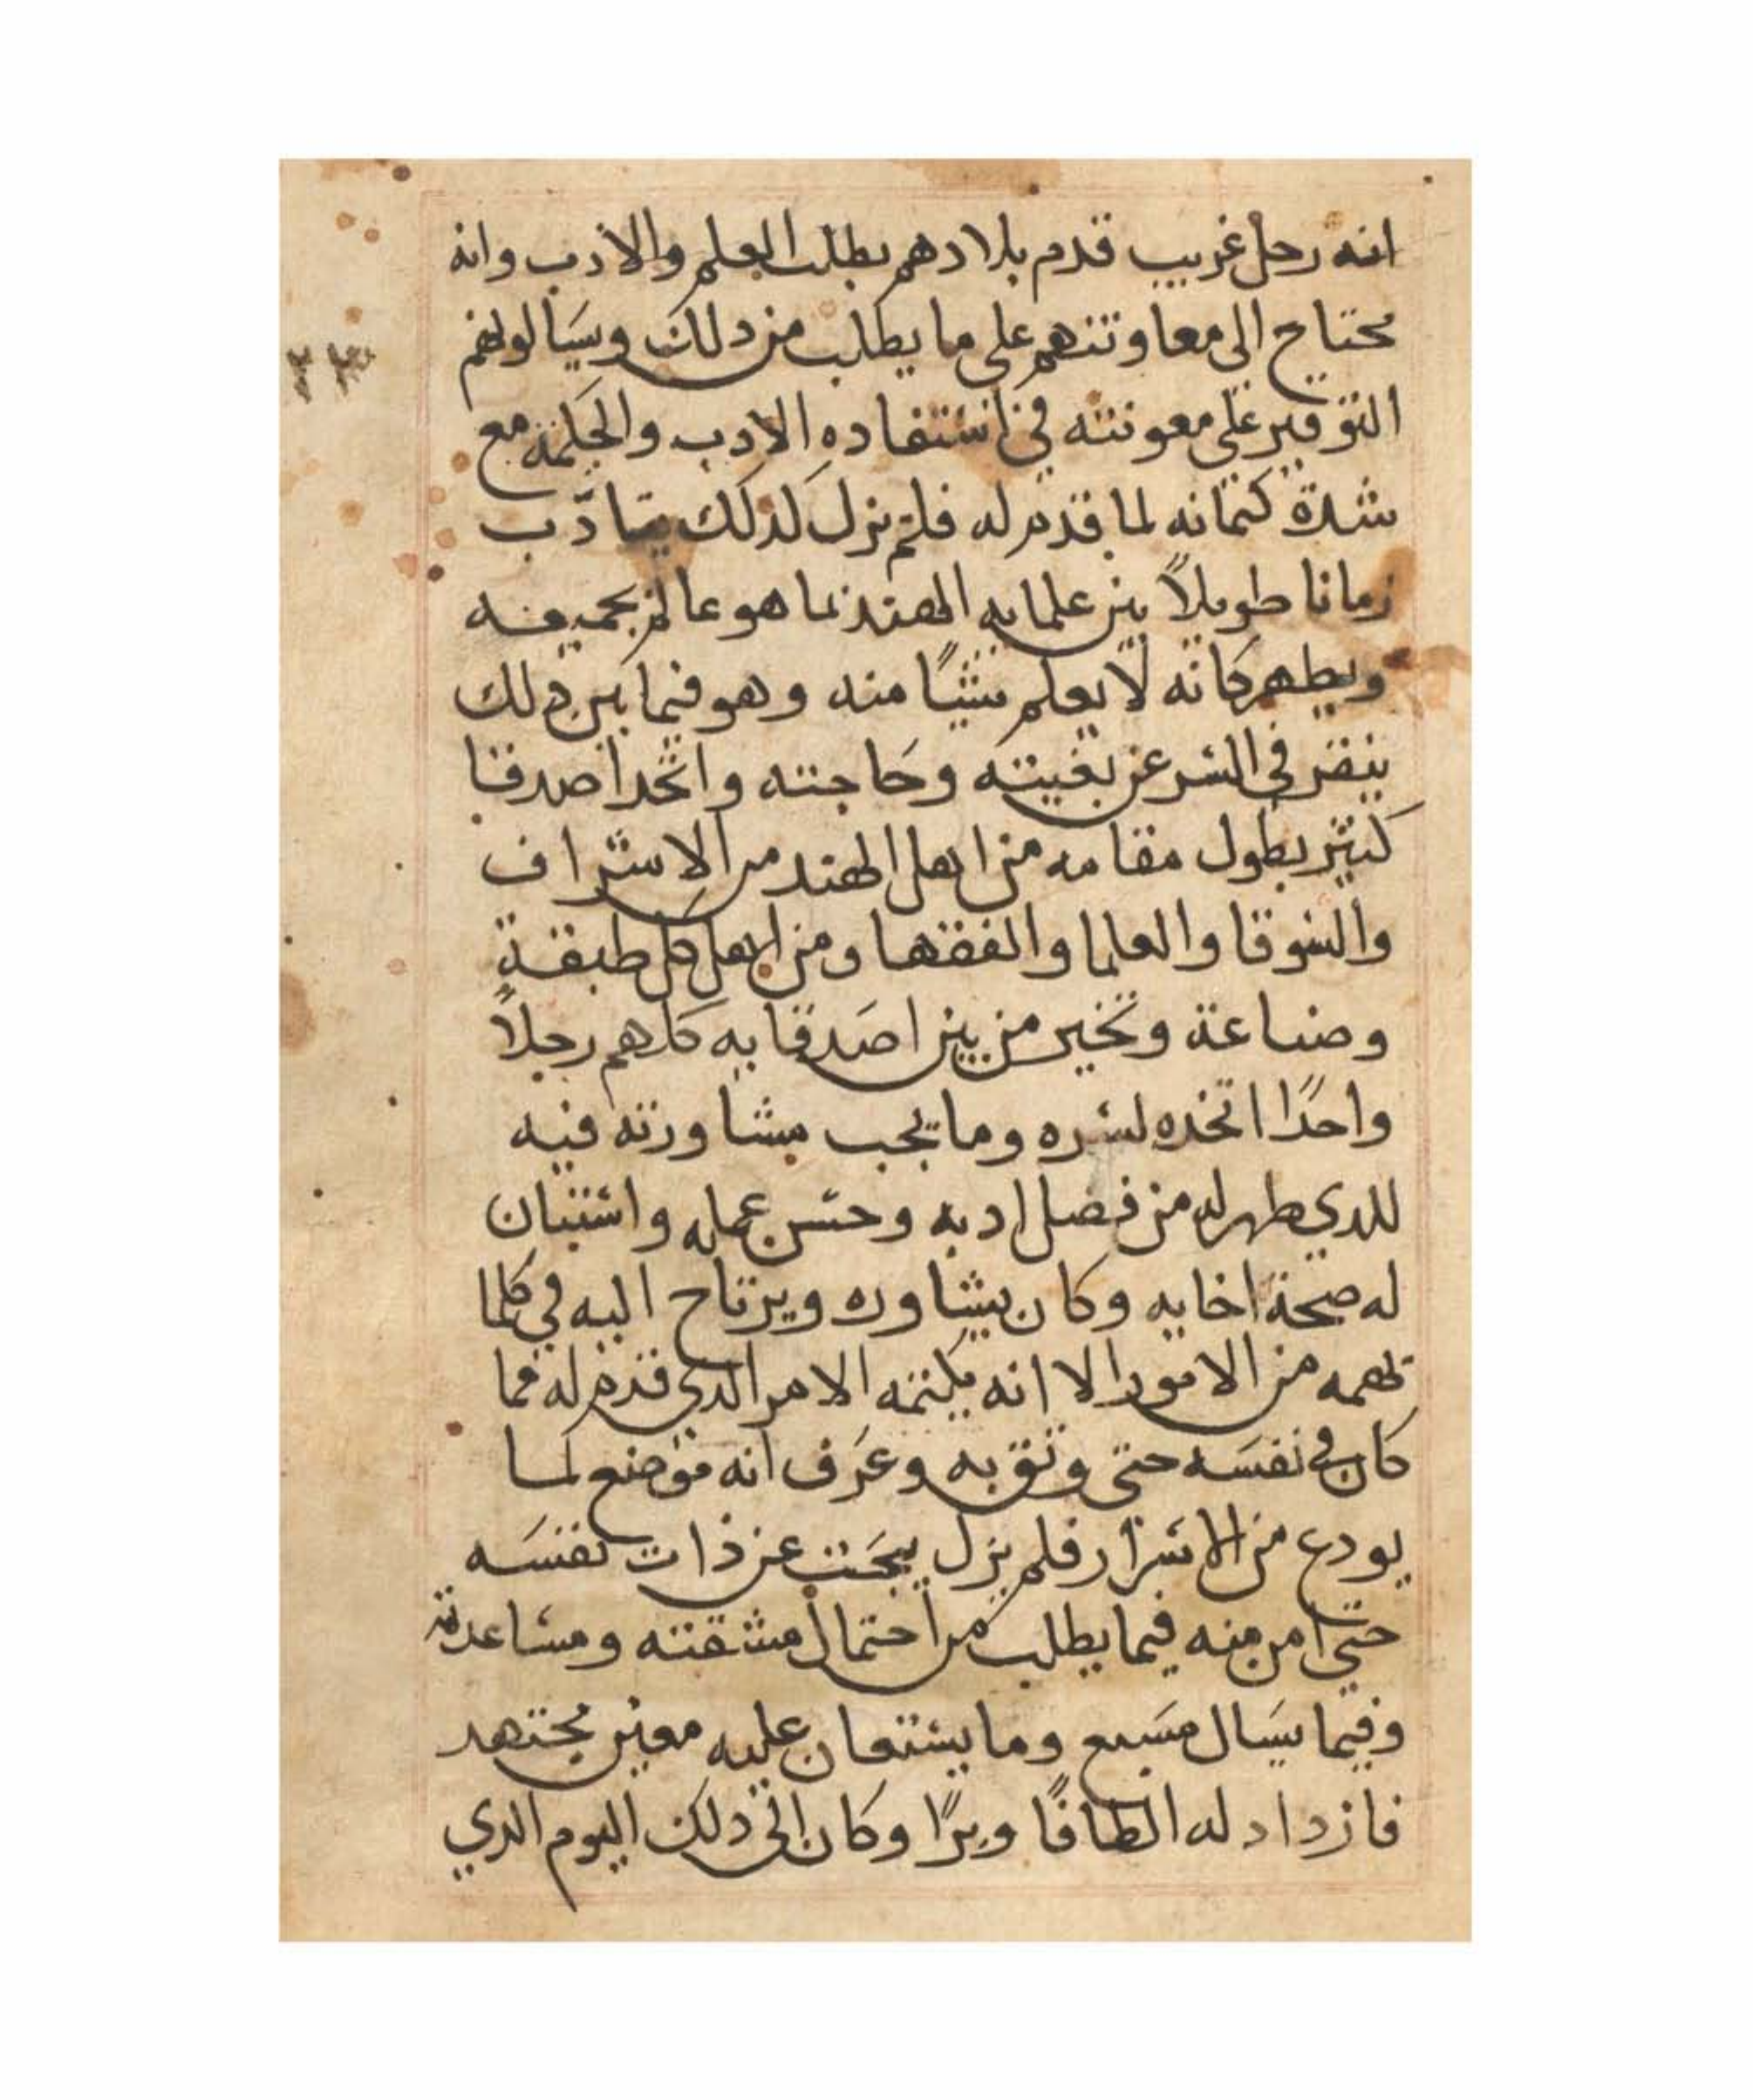 انه رجل غريب قدم بلادهم بطلب العلم والادب وانه
محتاج الى معاونتهم على ما يطلب من دلك ويسالونهم
التوقير على معونته في استفاده الادب والحكمة مع
شدة كتمانه لما قدم له فلم يزل لذلك يتادب
زمانا طويلاً بين علمايه الهند بما هو عالم بجميعه
ويطهر كانه لا يعلم شيًا منه وهو فيما بين دلك
ينقر في السر عن بغيته وحاجته واتخد اصدقا
كثير بطول مقامه من اهل الهند من الاشراف
والسوقا والعلما والفقها ومن اهل كل طبقة
وصناعة وتخير من بين اصدقايه كلهم رجلاً
واحدًا اتخده لسره وما يجب مشاورته فيه
للدي طهر له من فضل ادبه وحسن عمله واستبان
له صحة اخايه وكان يشاوره ويرتاح اليه في كلما
تهمه من الامور الا انه يكتمه الامر الدي قدم له مما
كان في نفسه حتى وثق به وعرف انه موضع لما
يودع من الاسرار فلم يزل يبحث عن ذات نفسه
حتى امن منه فيما يطلب من احتمال مشقته ومساعدته
وفيما يسال مسبع وما يستعان عليه معين مجتهد
فازداد له الطافًا وبرًا وكان الى دلك اليوم الدي
٢٣